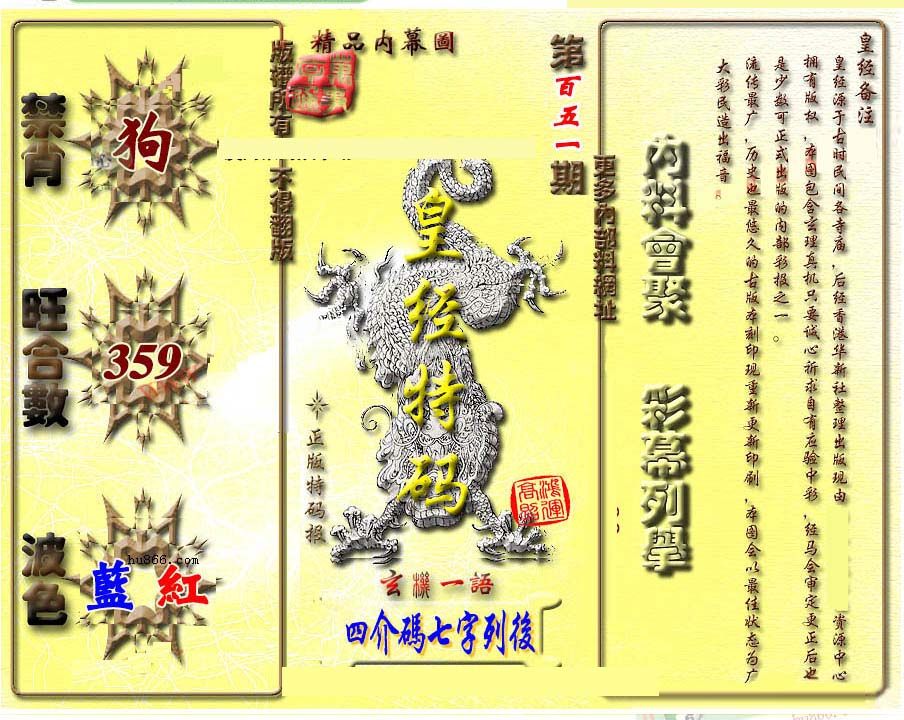 精品内幕圖
版權所有
不得翻版
第
百五一
期
更多內部料網址
禁肖
狗
旺合數
359
波色
hu866.com
藍 紅
皇经特码
正版特码报
鴻運高照
玄機一語
四介碼七字列後
內料會聚
彩幕列舉
皇经备注
皇经源于古时民间各寺庙，后经香港华新社整理出版现由 资源中心
拥有版权，本图包含玄理真机只要诚心祈求自有应验中彩，经马会审定更正后也
是少数可正式出版的内部彩报之一。
流传最广，历史也最悠久的古版本刻印现重新更新印刷，本图会以最佳状态为广
大彩民造出福音